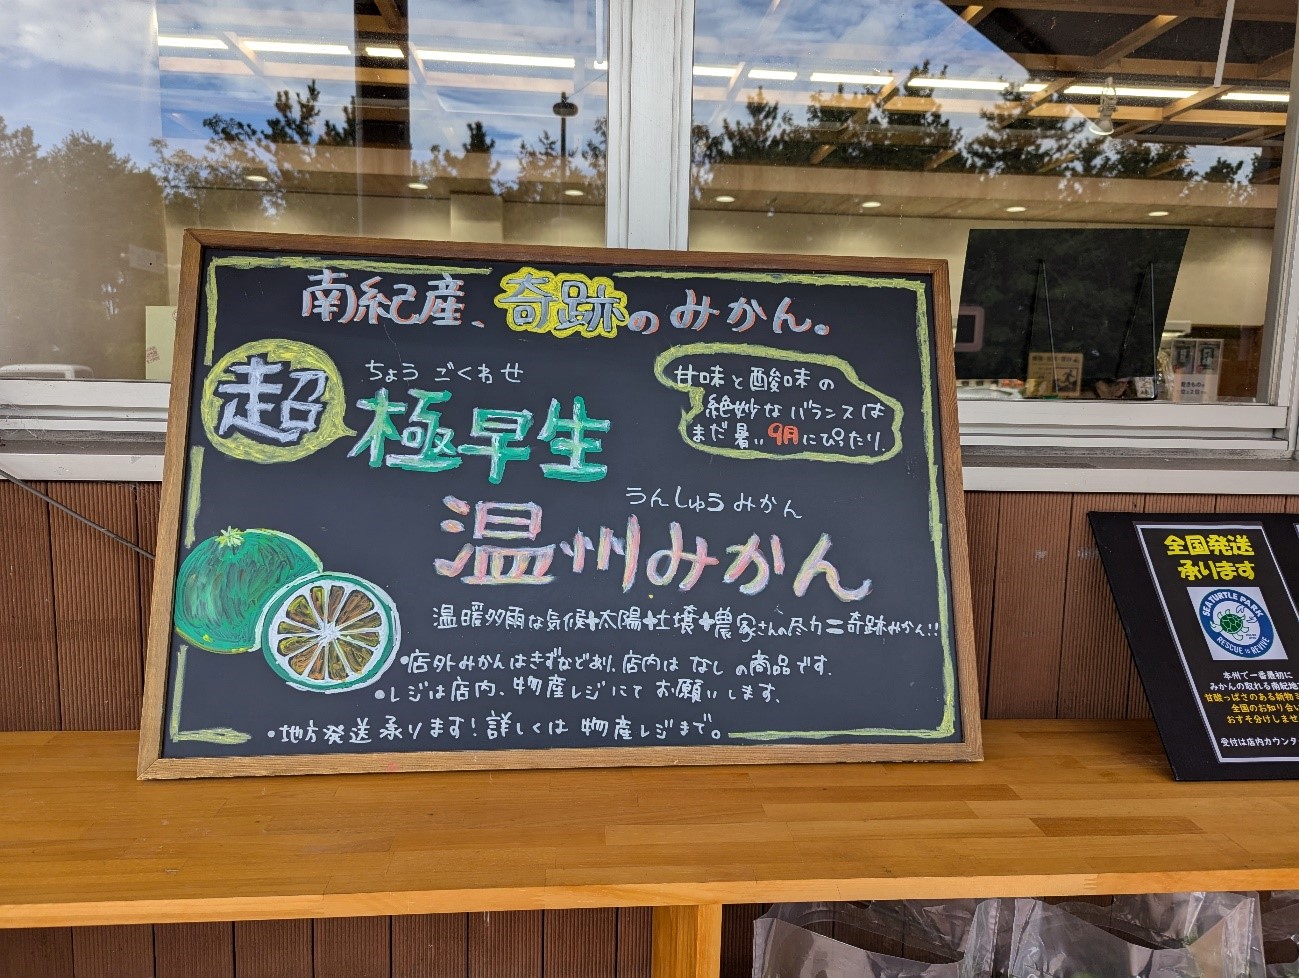 南紀産、奇跡のみかん。
ちょう ごくわせ
超極早生
甘味と酸味の
絶妙なバランスは
まだ暑い9月にぴったり。
うんしゅうみかん
温州みかん
温暖多雨な気候+太陽+土壌+農家さんの尽力=奇跡みかん!!
•店外みかんはきずなどあり、店内はなしの商品です。
•レジは店内、物産レジにてお願いします。
•地方発送承ります!詳しくは物産レジまで。
全国発送
承ります
SEATURTLE PARK
RESCUE to REVIVE
本州で一番最初に
みかんの取れる南紀地
甘酸っぱさのある新物
全国のお知り合い
おすそ分けしませ
受付は店内カウンタ